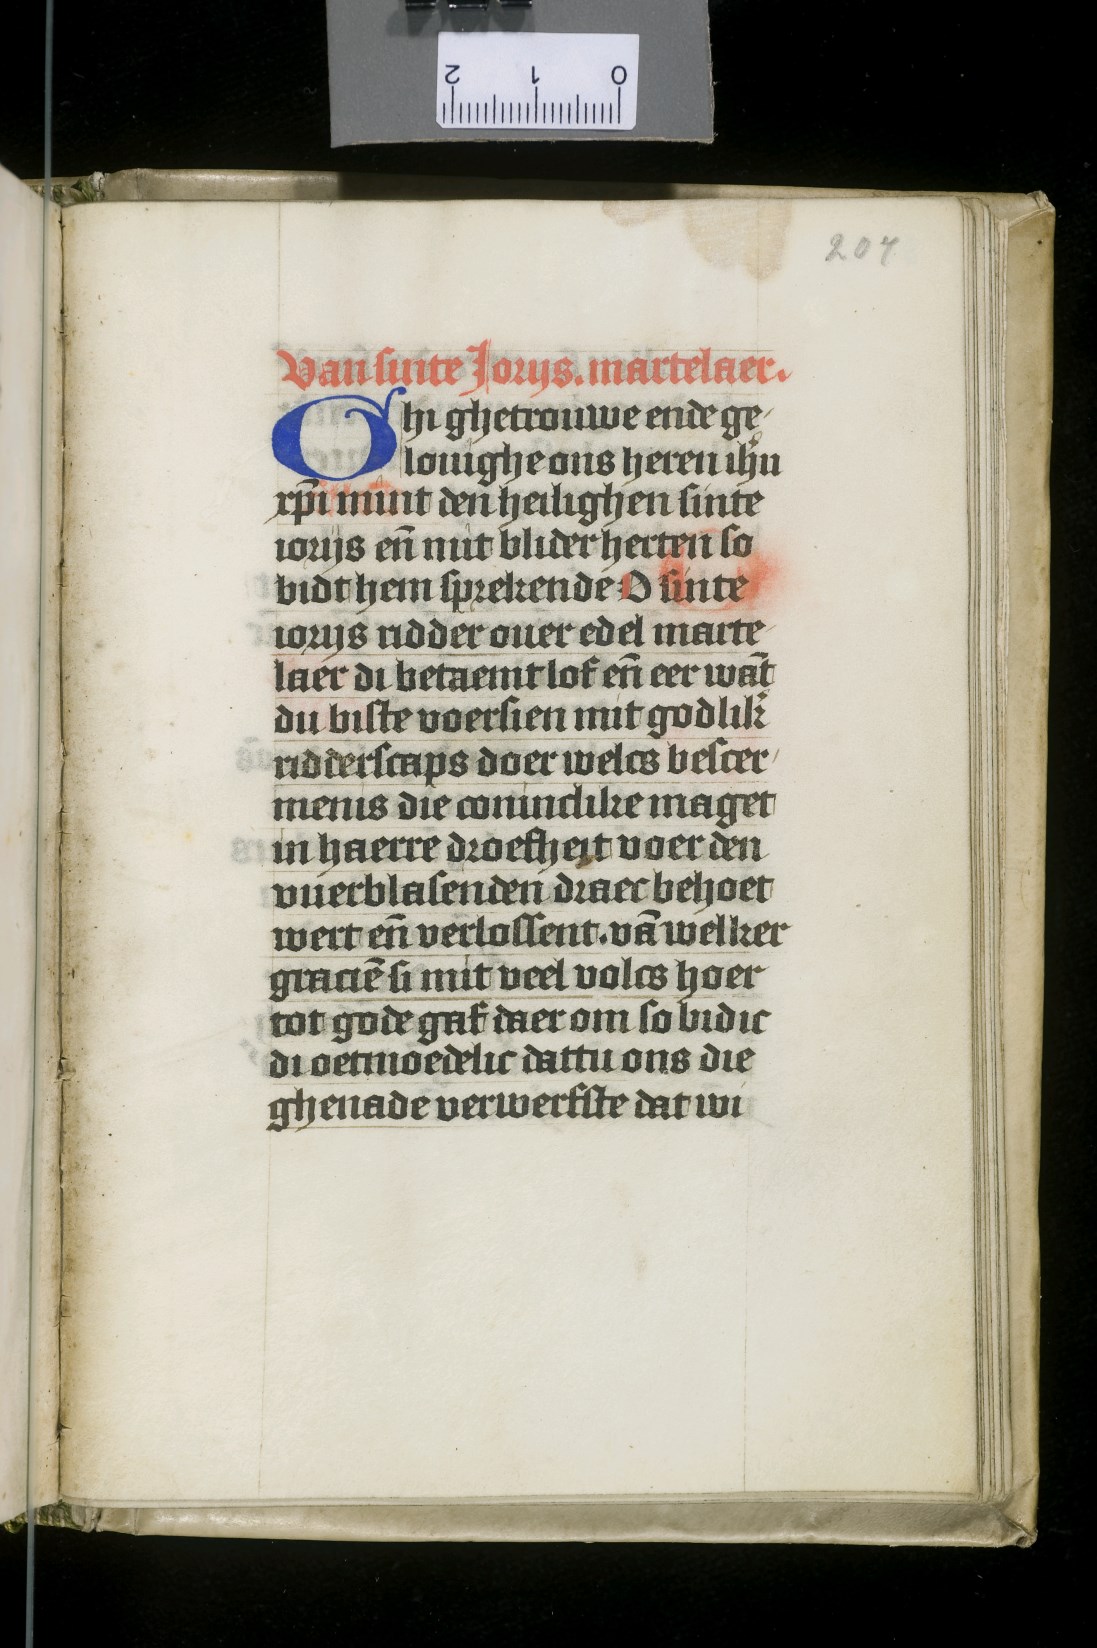 2 1 0
207
Van sinte Jorijs. martelaer.
Ghi ghetrouwe ende ge
louighe ons heren ihu̅
xp̅i mint den heilighen sinte
iorijs en̅ mit blider herten so
bidt hem sprekende O sinte
iorijs ridder ouer edel marte
laer di betaemt lof en̅ eer wa̅t
du biste voersien mit godlik
ridderscaps doer welcs bescer
menis die coninclike maget
in haerre droefheit voer den
vuerblasenden draec behoet
wert en̅ verlossent. va̅ welker
gracie̅ si mit veel volcs hoer
tot gode gaf daer om so bidic
di oetmoedelic dattu ons die
ghenade verwerfste dat wi